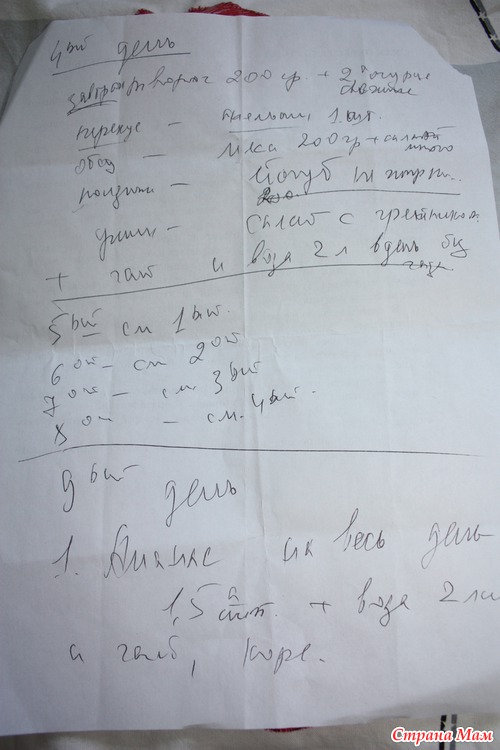 4ый день
завтрак творог 200 гр. + 2 огурца свежие
перекус – апельсин 1 шт.
обед – мяса 200 гр + салат много
полдник – йогурт
ужин – салат с
+ чай и вода 2 л в день без
5ый см 1ый.
6ой – см 2ой
7ой – см 3ый
8ой – см. 4ый.
9ый день
1. Ананас на весь день
1,5 шт. + вода 2 л
и чай, кофе.
Страна Мам